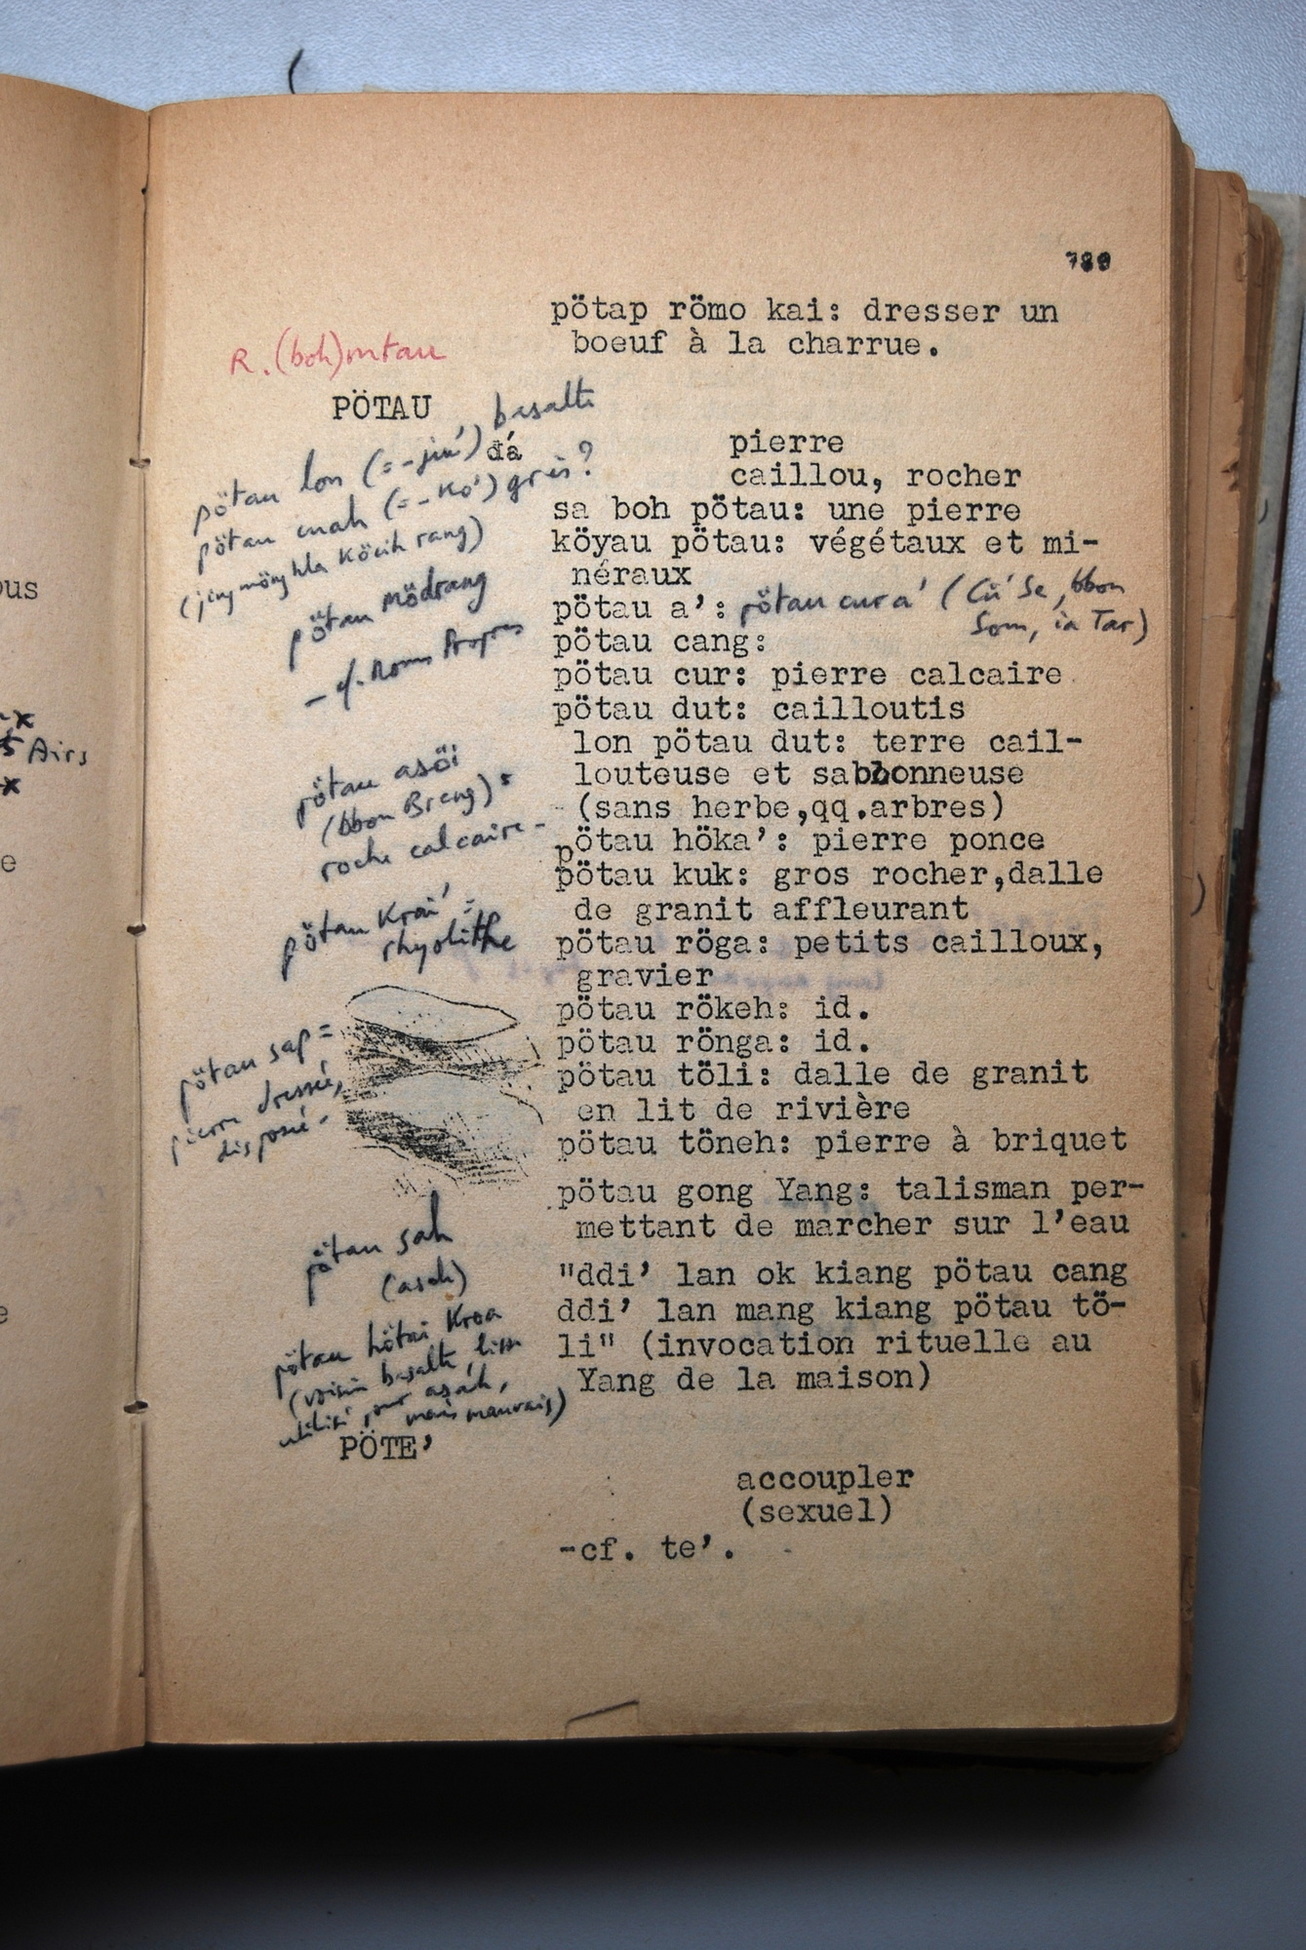 pötap römo kai: dresser un
boeuf à la charrue.
R. (boh)mtau
PÖTAU
basalte
đá
pierre
pötau lon (= -jiu')
caillou, rocher
pötau mah (= -ko') grès?
sa boh pötau: une pierre
köyau pötau: végétaux et mi-
(jing möng hla köcih rang)
néraux
pötau mödrang
pötau a': pötau cur a' (Cü' Se, bbon
Som, ia Tar)
- cf. Noms Propres
pötau cang:
pötau cur: pierre calcaire
pötau dut: cailloutis
lon pötau dut: terre cail-
louteuse et sabbonneuse
(sans herbe,qq.arbres)
pötau asöi
(bbon Breng) =
roche calcaire -
pötau höka': pierre ponce
pötau kuk: gros rocher,dalle
de granit affleurant
pötau krai' =
rhyolithe
pötau röga: petits cailloux,
gravier
pötau rökeh: id.
pötau rönga: id.
pötau sap =
pierre dressée,
disposée -
pötau töli: dalle de granit
en lit de rivière
pötau töneh: pierre à briquet
pötau gong Yang: talisman per-
mettant de marcher sur l'eau
pötau sah
(asah)
"ddi' lan ok kiang pötau cang
ddi' lan mang kiang pötau tö-
li" (invocation rituelle au
Yang de la maison)
pötau hötai kroa
(voisin basalte, lisse
utilisé pour asah,
mais mauvais)
PÖTE'
accoupler
(sexuel)
-cf. te'.
ous
Airs
e
e